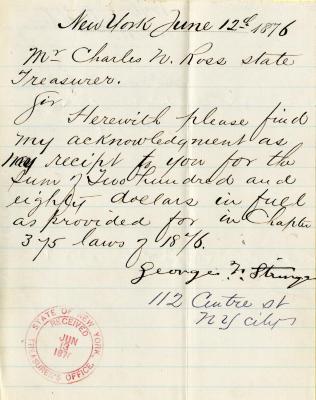 New York June 12th 1876
Mr Charles N. Ross state
Treasurer.
Sir
Herewith please find
my acknowledgment as
my recipt to you for the
Sum of Two hundred and
eighty dollars in fuel
as provided for in Chapter
375 laws of 1876.
George N.
112 Centre st
N Y city
STATE OF NEW YORK
RECEIVED
JUN
13
TREASURER'S OFFICE.